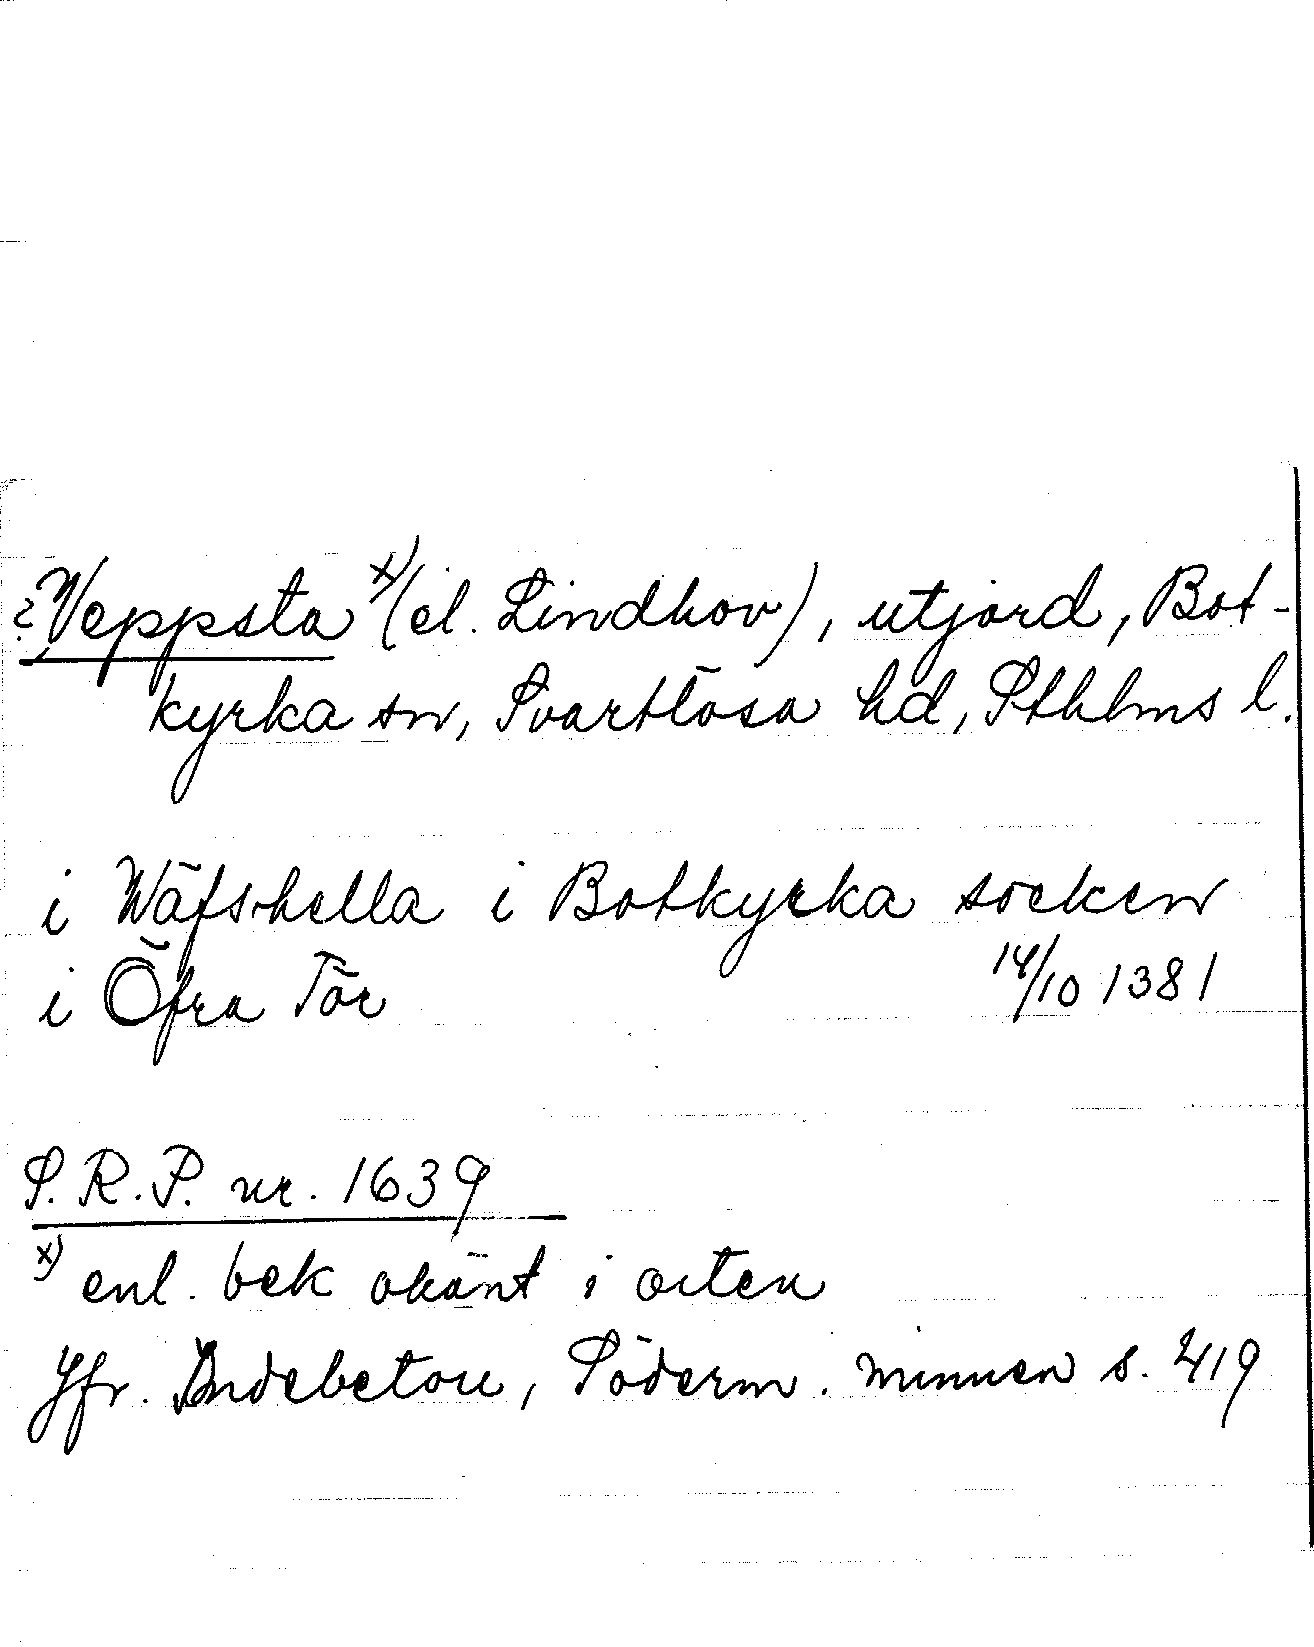 ? Veppsta x) (el. Lindhov), utjord, Bot-
kyrka sn, Svartlösa hd, Sthlms l.
i Wäfshella i Botkyrka socken
i Öfra Tör 14/10 1381
S.R.P. nr. 1639
x) enl. bek okänt i orten
Jfr. Indebetou, Söderm. minnen s. 419